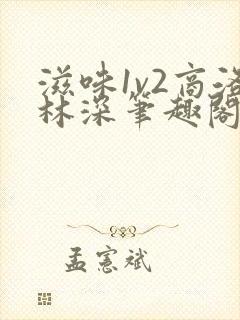 滋味1v2高洛
林深笔趣阁
孟宪斌